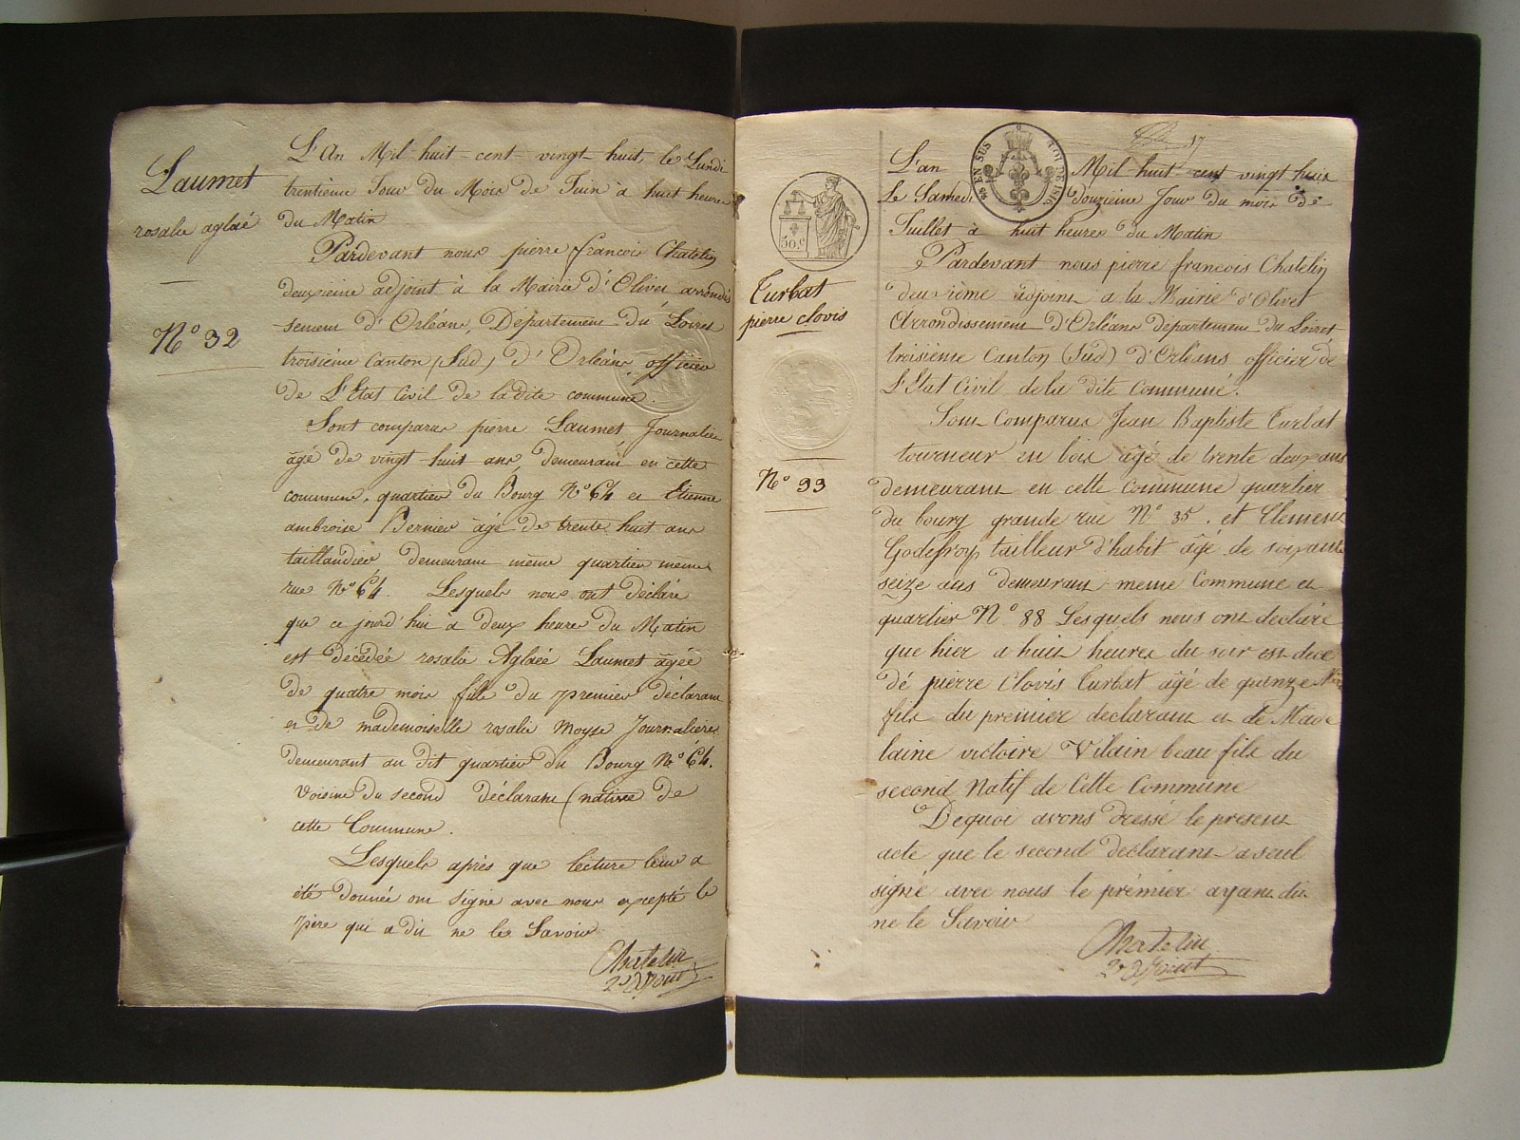 Laumet
rosalie aglaé
N° 32
L'An Mil-huit-cent-vingt-huit, le Lundi
trentieme Jour du Mois de Juin à huit heures
du Matin
Pardevant nous pierre francois Chatelin
deuxieme adjoint à la Mairie d'Olivet arrondis
sement d'Orléans, Departement du Loiret
troisième Canton (Sud) d'Orléans, officier
de L'Etat Civil de la dite commune.
Sont comparus pierre Laumet Journalier
âgé de vingt huit ans, demeurant en cette
commune, quartier du Bourg N° 64 et Etienne
ambroise Bernier âgé de trente huit ans
taillandier demeurant même quartier même
rue N° 64. Lesquels nous ont déclaré
que ce jourd'hui a deux heures du Matin
est décédée rosalie Aglaée Laumet âgée
de quatre mois fille du premier déclarant
et de mademoiselle rosalie Moyse Journaliere
demeurant au dit quartier du Bourg N° 64.
Voisine du second déclarant (native de
cette Commune.
Lesquels après que lecture leur a
été donnée ont signé avec nous excepté le
père qui a dit ne le Savoir
Chatelin
2e adjoint
17
L'an Mil-huit-cent vingt huit
Le Samedi douzieme Jour du mois de
Juillet à huit heures du Matin
50 c
EN SUS
Turbat
pierre clovis
N° 33
Pardevant nous pierre francois Chatelin
deuxième adjoint a la Mairie d'Olivet
Arrondissement d'Orléans département du Loiret
troisième Canton (Sud) d'Orléans officier de
L'Etat Civil de la dite Commune.
Sont Comparus Jean Baptiste Turbat
tourneur en bois âgé de trente deux ans
demeurant en cette Commune quartier
du bourg grande rue N° 35. et Clement
Godefroy tailleur d'habit âgé de soixante
seize ans demeurant meme Commune et
quartier N° 88 Lesquels nous ont declaré
que hier a huit heures du soir est déce
dé pierre Clovis Turbat âgé de quinze
fils du premier declarant et de Made
laine victoire Vilain beau fils du
second Natif de Cette Commune
De quoi avons dressé le present
acte que le second declarant a seul
signé avec nous le prémier ayant dit
ne le Savoir
Chatelin
2e adjoint